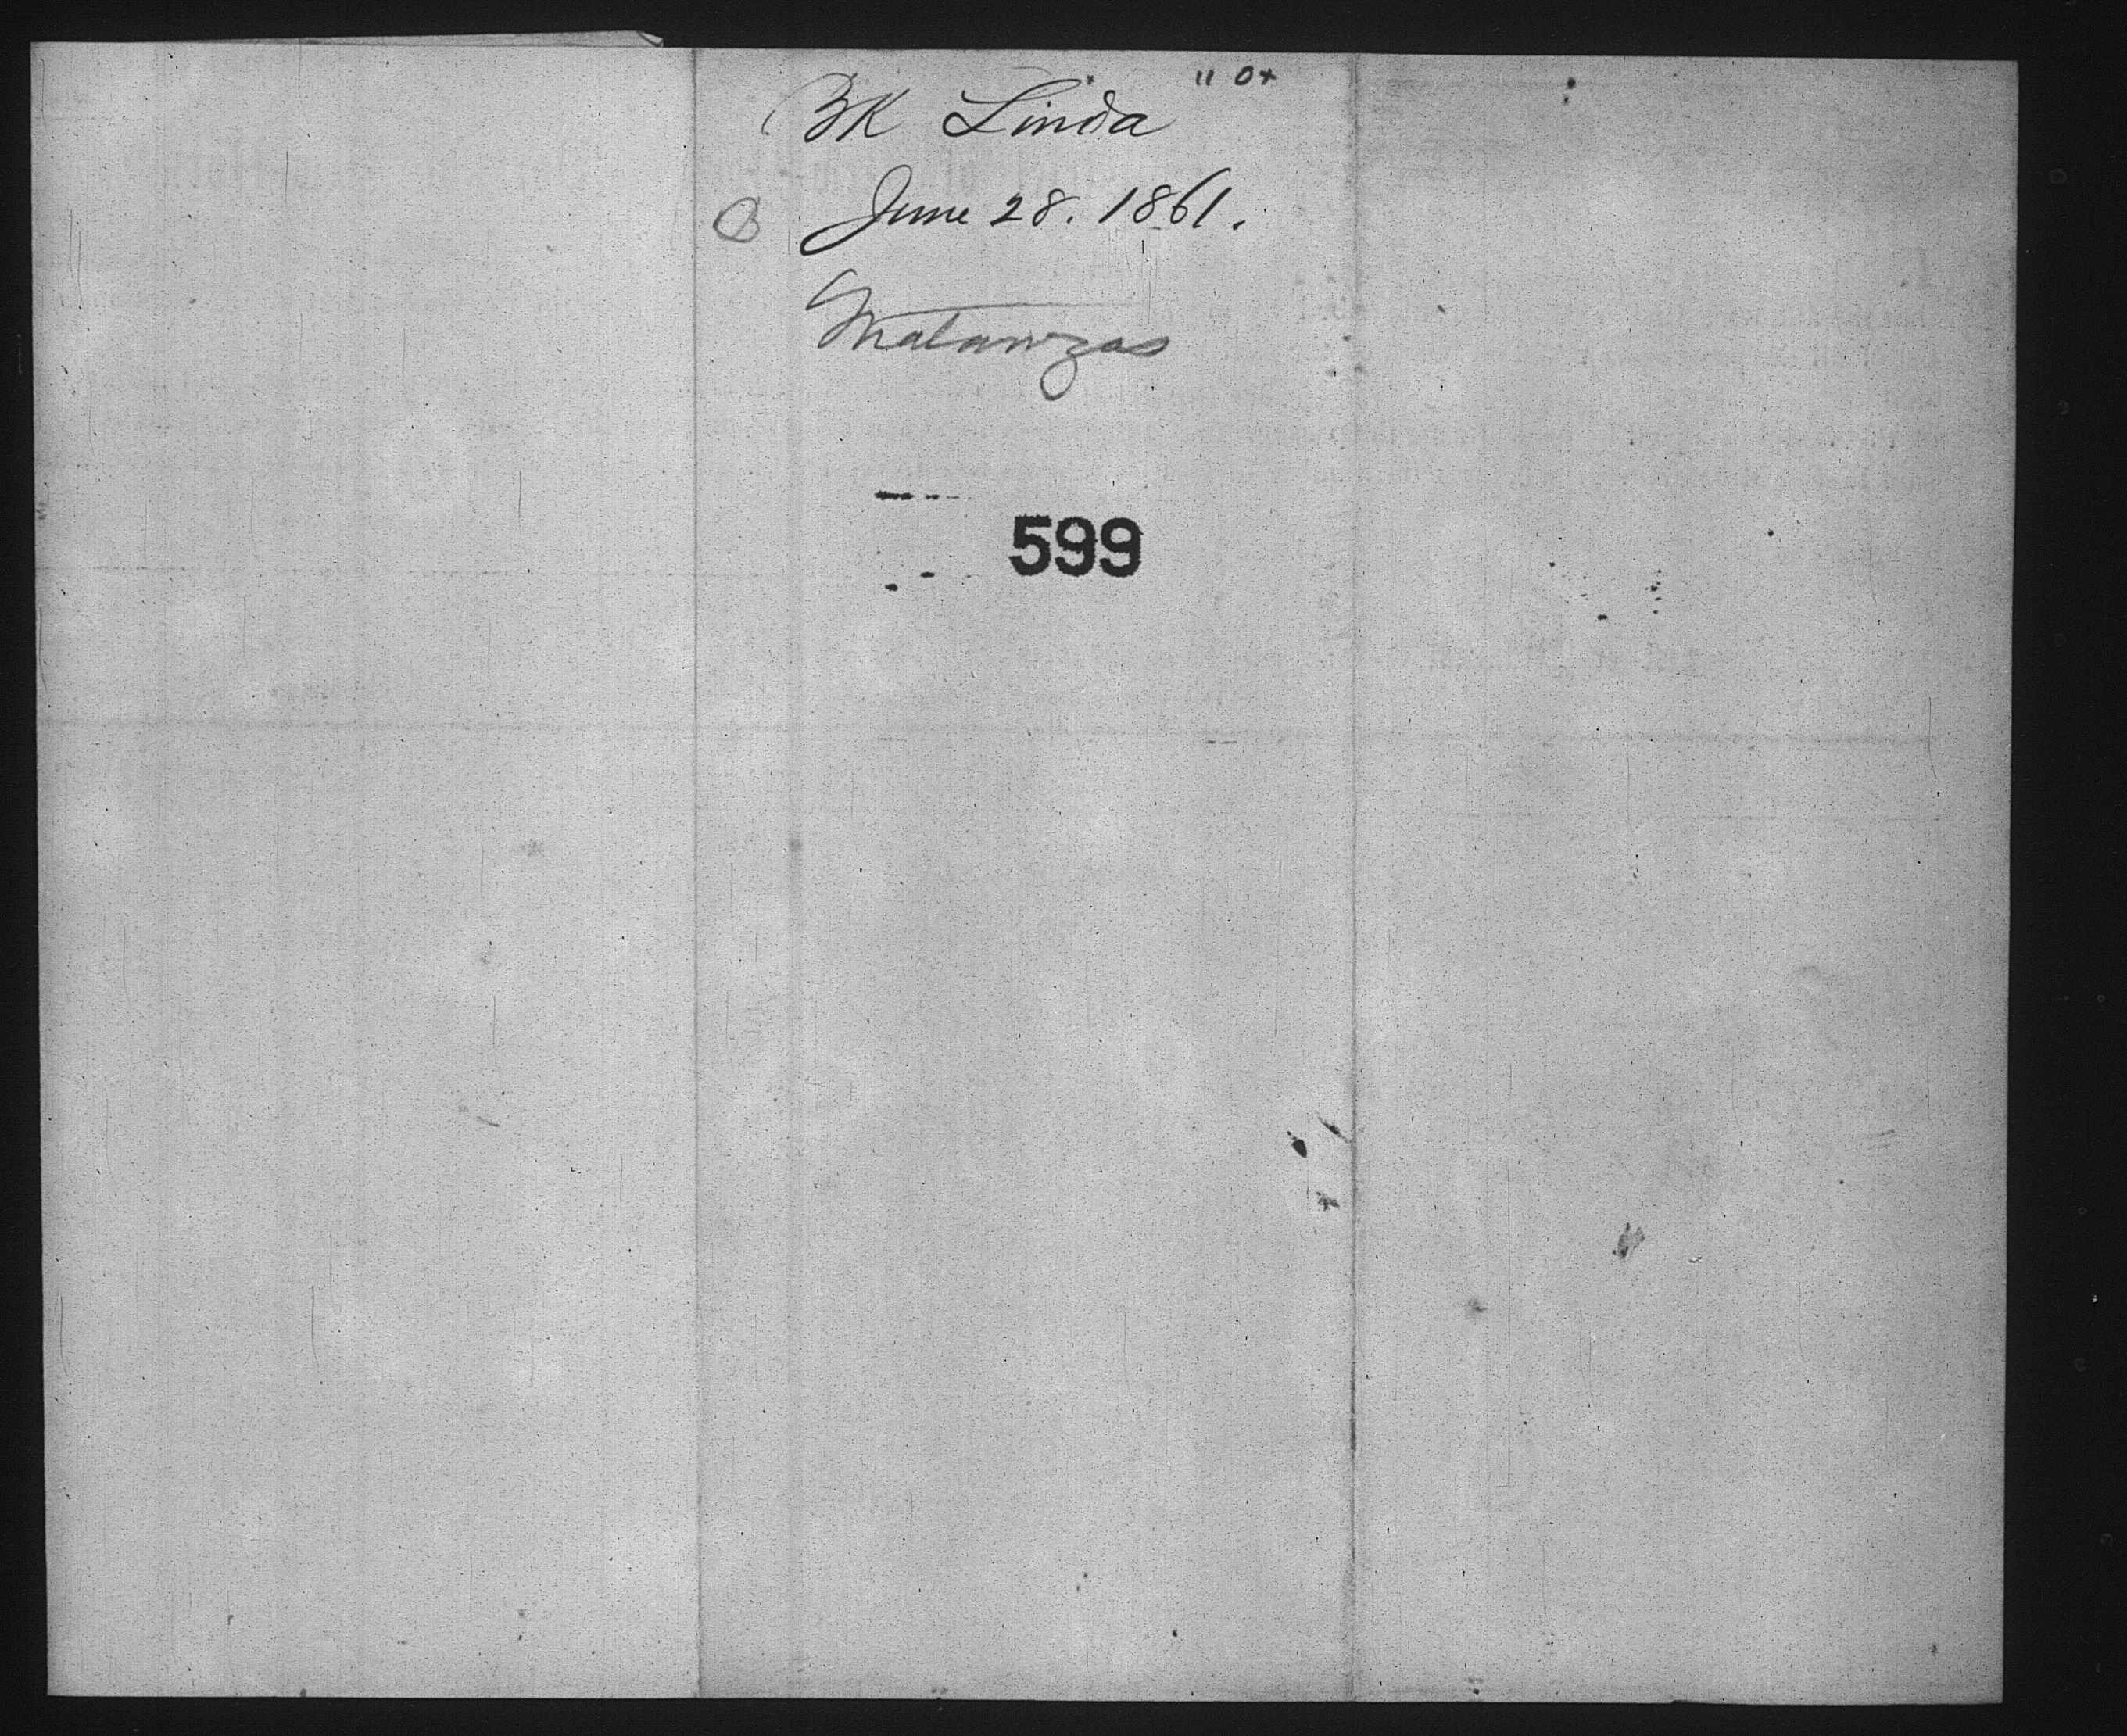 BK Linda
June 28. 1861.
Matanzas
599